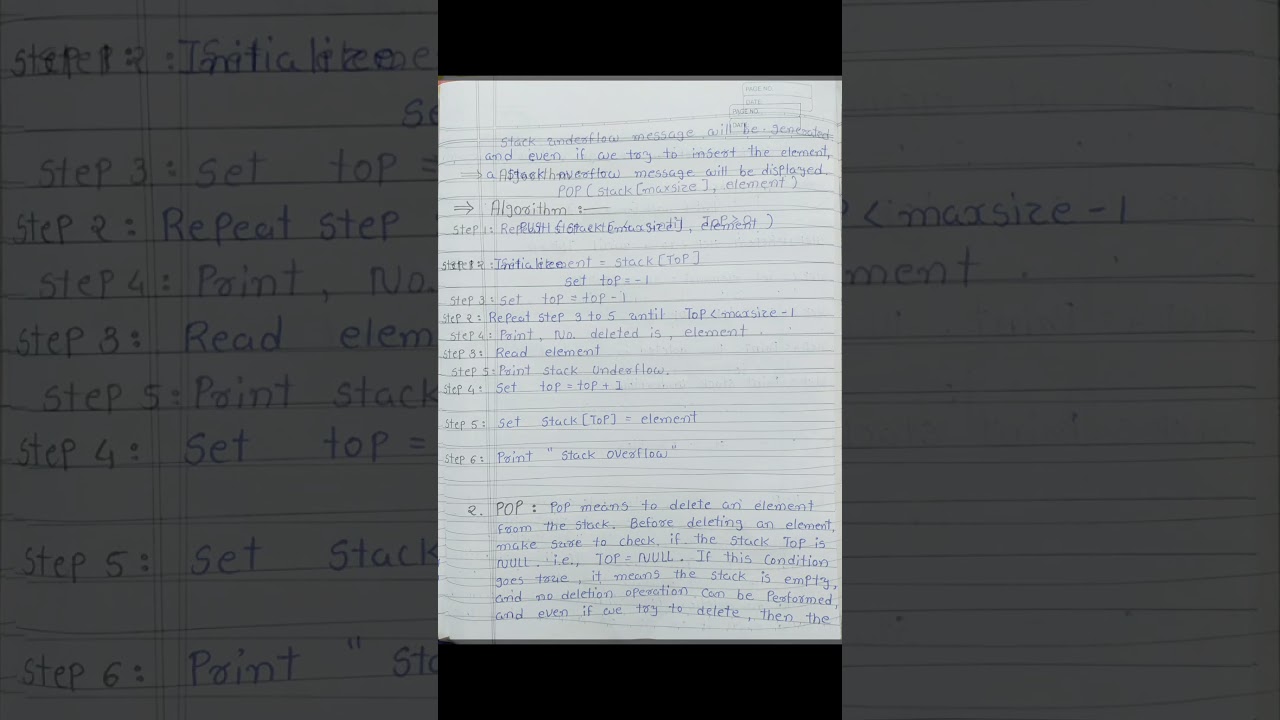 PAGE NO.
DATE
PAGE NO.
Stack underflow message will be generated
and even if we try to insert the element,
message will be displayed.
POP (stack[maxsize], element)
⇒ Algorithm :—
Step 1: element )
Set top = -1
Step 3: Set top = top - 1
Step 2: Repeat step 3 to 5 until TOP < maxsize - 1
Step 4: Print, No. deleted is, element.
Step 3: Read element
Step 5: Print stack underflow.
Step 4: Set top = top + 1
Step 5: Set Stack[TOP] = element
Step 6: Print " Stack overflow"
2. POP : POP means to delete an element
from the stack. Before deleting an element,
make sure to check, if the stack Top is
NULL. i.e., TOP = NULL. If this condition
goes true, it means the stack is empty,
and no deletion operation can be Performed,
and even if we try to delete, then the